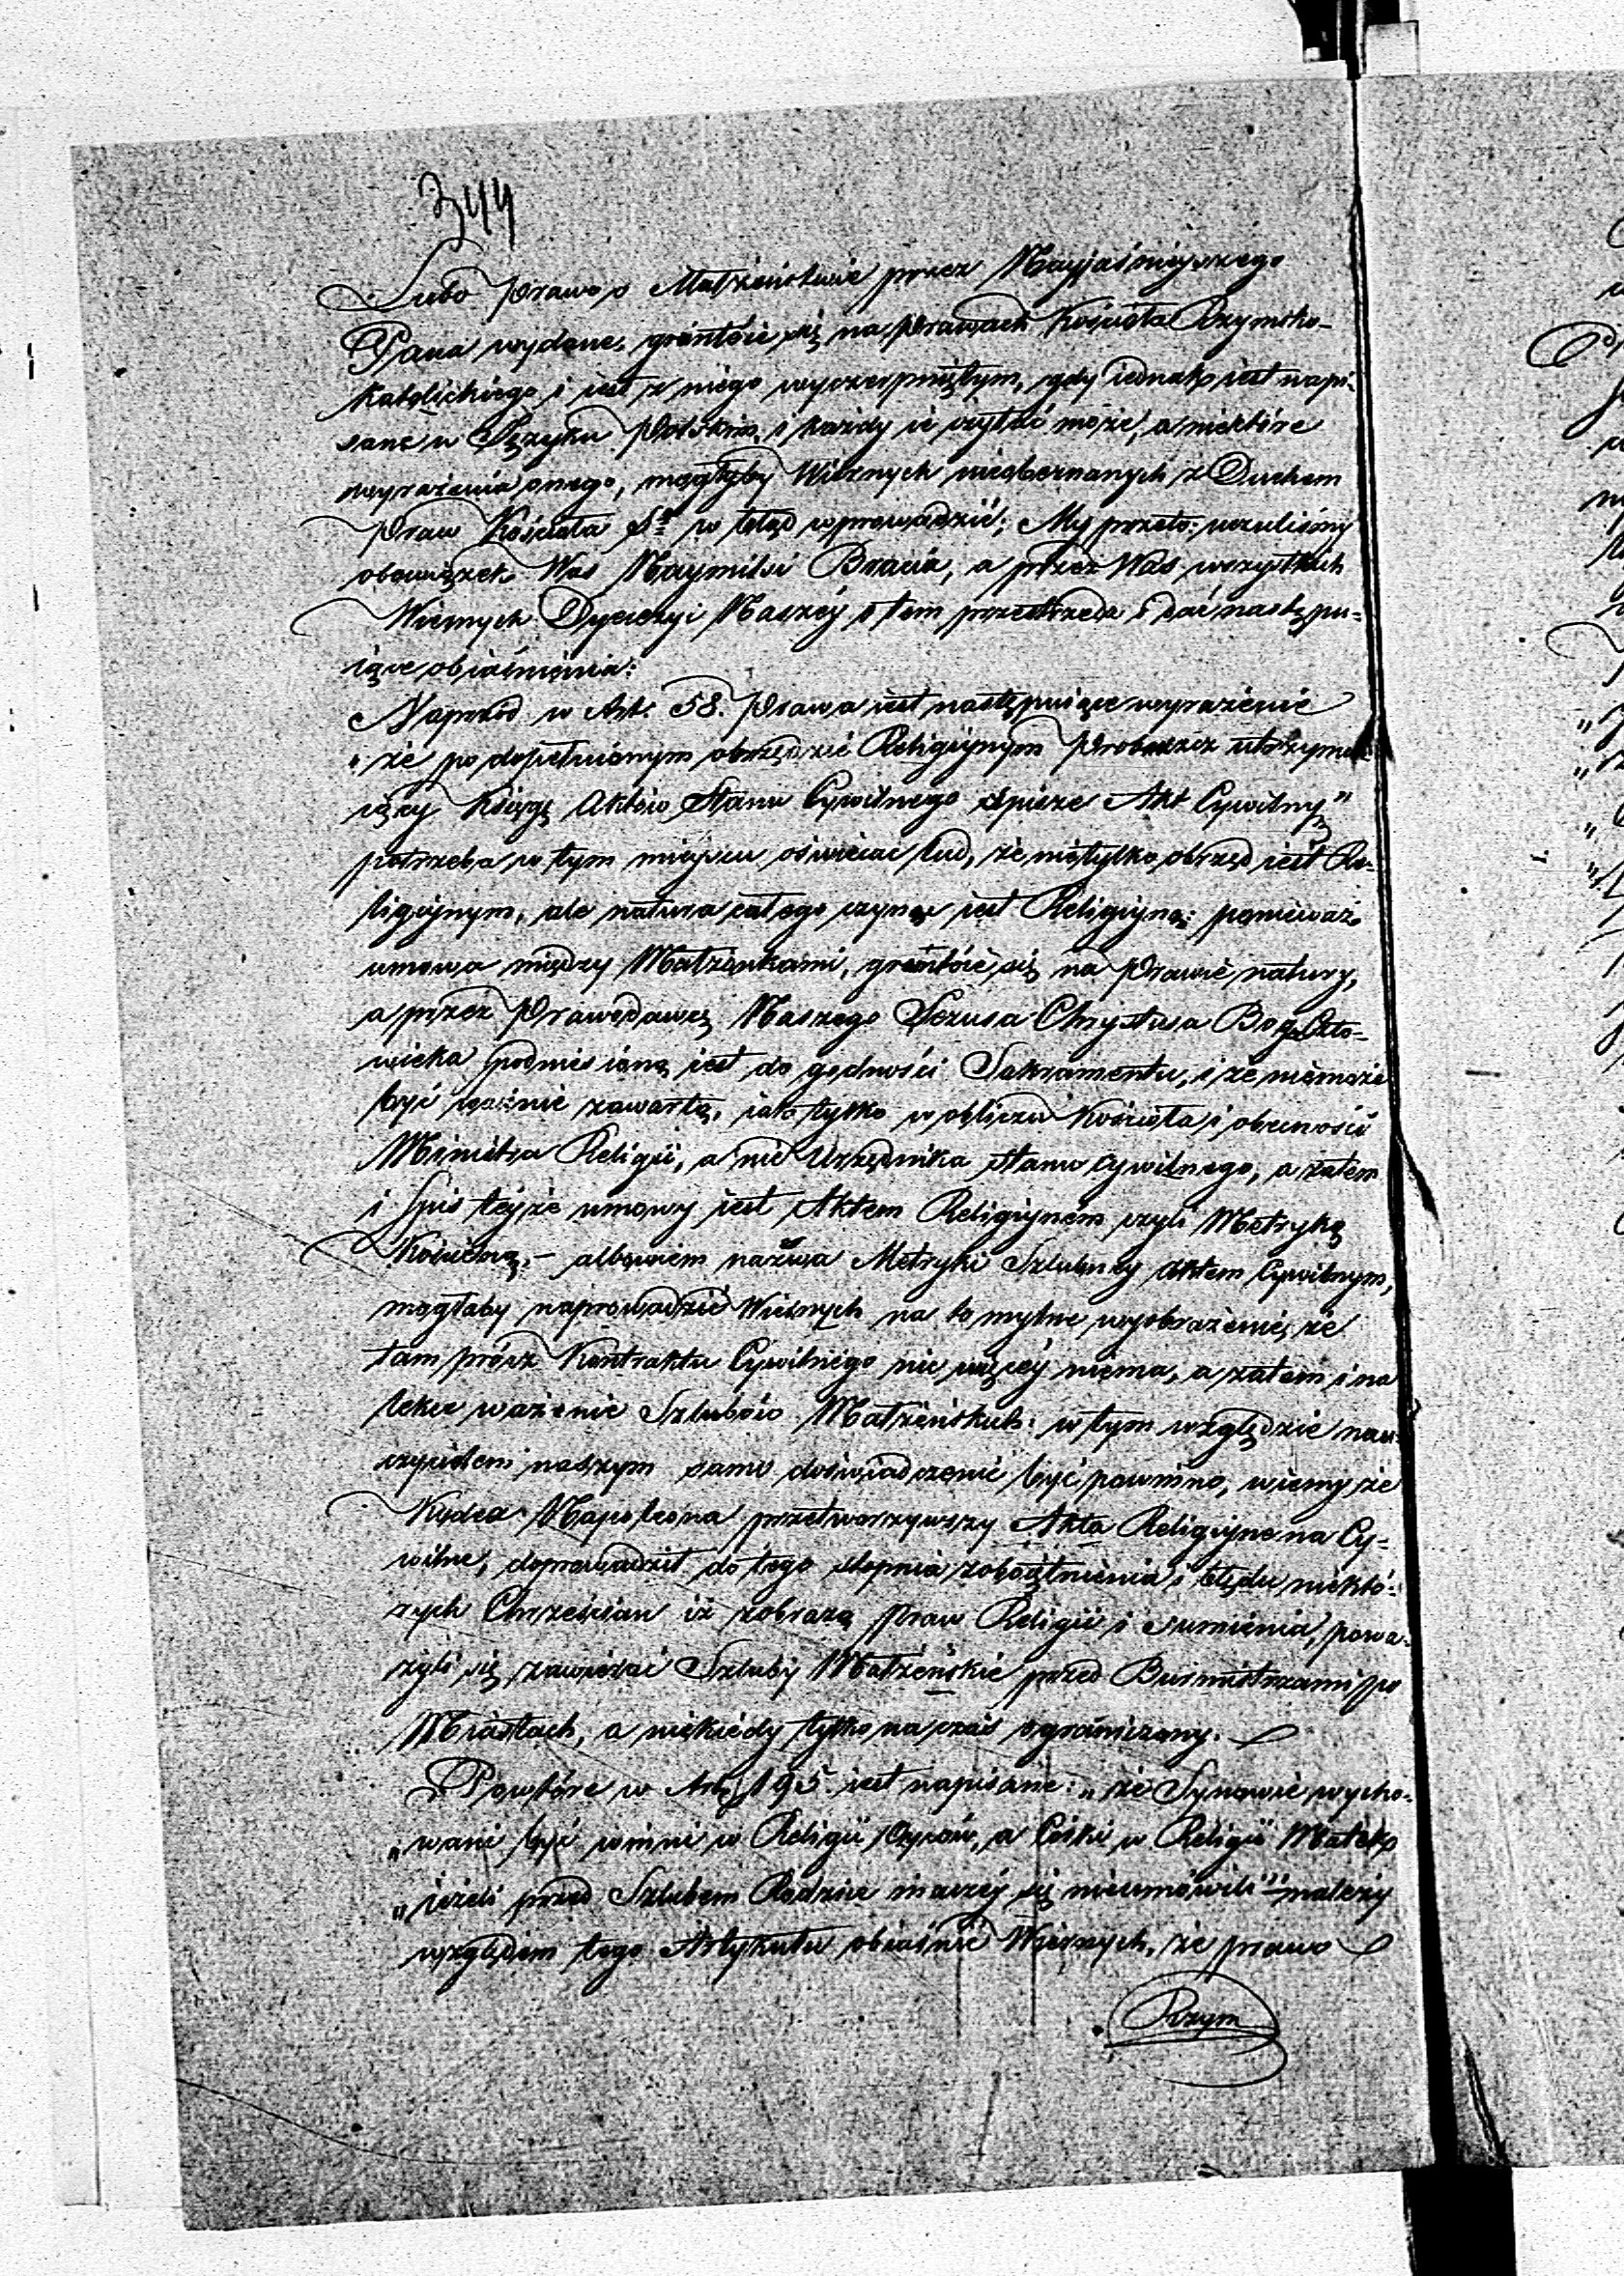 344
Lubo Prawo o Małżeństwie przez Nayjaśnieyszego
Pana wydane, grontóie się na prawach Kościoła Rzymsko-
Katolickiego i iest z niego wyczerpniętym, gdy iednak iest napi-
sane w Języku Polskim, i każdy ie czytać może, a niektóre
wyrażenia onego, mogłyby Wiernych nieobeznanych z Duchem
Praw Kościoła Sgo w błąd wprowadzić; My przeto uczuliśmy
obowiązek Was Naymilsi Bracia, a przez Was wszystkich
Wiernych Dyecezyi Naszéy o tem przestrzedz i dać następu-
iące obiaśnienia:
Naprzód w Art. 58. Prawa iest następuiące wyrażenie
„że po dopełnionym obrzędzie Religiynym Proboszcz utrzymu-
iący Księgę Aktów Stanu Cywilnego spisze Akt Cywilny”
potrzeba w tym mieyscu oświecać lud, że nietylko obrzęd iest Re-
ligiynym, ale natura całego czynu iest Religiyną: ponieważ
umowa między Małżonkami, grontóie się na Prawie natury,
a przez Prawodawcę Naszego Jezusa Chrystusa Boga Czło-
wieka podniesioną iest do godności Sakramentu, i że niemoże
być ważnie zawartą, iak tylko w obliczu Kościoła i obecności
Ministra Religii, a nie Urzędnika stanu cywilnego, a zatem
i Spis teyże umowy iest Aktem Religiynem czyli Metryką
Kościelną, – albowiem nazwa Metryki Szlubney Aktem Cywilnym,
mogłaby naprowadzić Wiernych na to mylne wyobrażenie, że
tam prócz Kontraktu Cywilnego nic więcéy niema, a zatem i na
lekce ważenie Szlubów Małżeńskich: w tym względzie nau-
czycielem naszym samo doświadczenie być powinno, wiemy że
Kodex Napoleona przetworzywszy Akta Religiyne na Cy-
wilne, doprowadził do tego stopnia zoboiętnienia i błędu niektó-
rych Chrześcian iż z obrazą praw Religii i sumienia, powa-
żyli się zawierać Szluby Małżeńskie przed Burmistrzami po
Miastach, a niekiedy tylko na czas ograniczony.
Powtóre w Art. 195. iest napisane: „że Synowie wycho-
„wani być winni w Religii Oyców, a Córki w Religii Matek
„ieżeli przed Szlubem Rodzice inaczéy się nieumówili” należy
względem tego Artykułu obiaśnić Wiernych, że prawo
Rzym